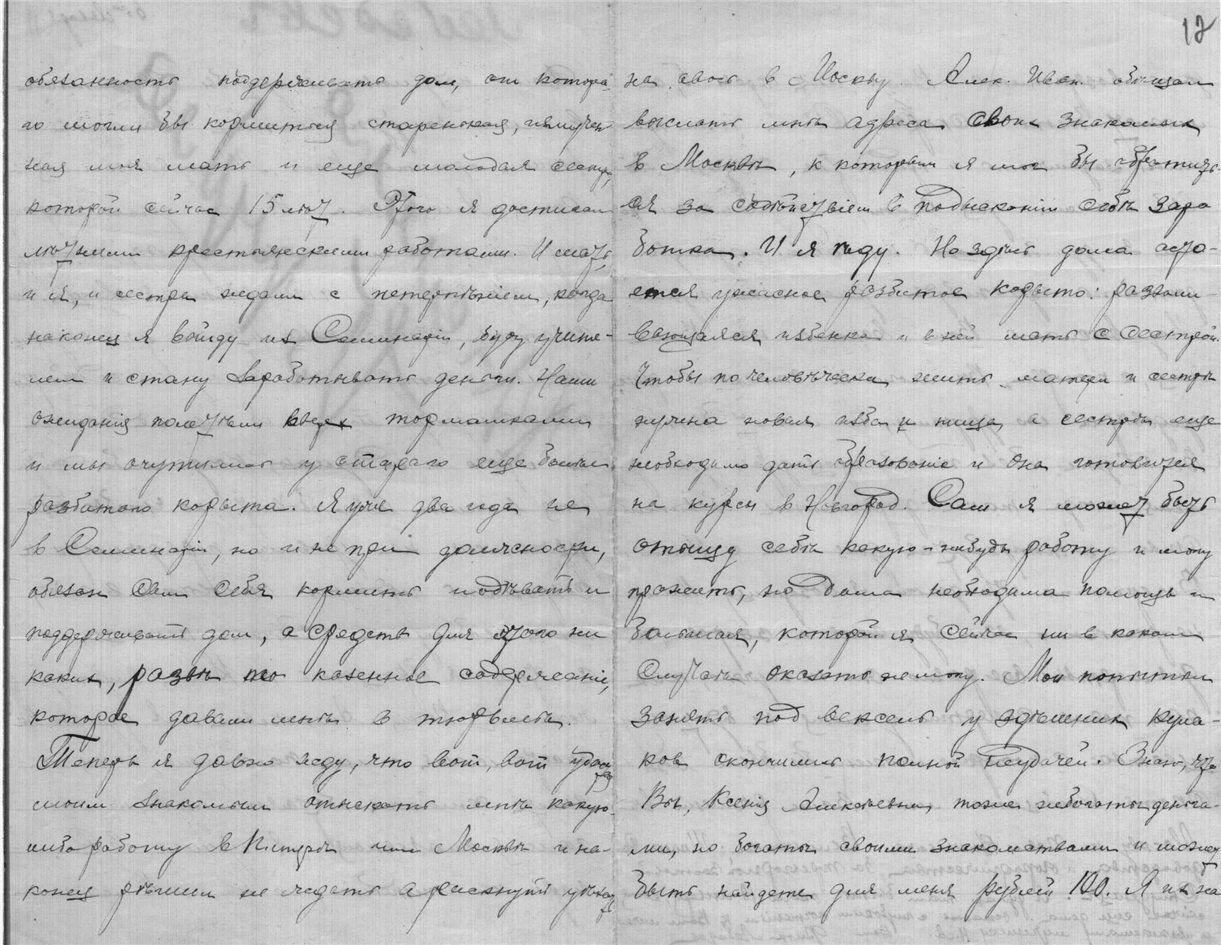 12
обязанность поддерживать дом, от котора
го могли бы кормиться старенькая, измучен
ная моя мать и еще молодая сестра,
которой сейчас 15 лѣт. Этого я достигал
лѣтними крестьянскими работами. И мать,
и я, и сестра ждали с нетерпѣнием, когда
наконец я выйду из Семинаріи, буду учите-
лем и стану зарабатывать деньги. Наши
ожиданія полетѣли вверх тормашками
и мы очутились у стараго еще болѣе
разбитаго корыта. Я уже два года не
в Семинаріи, но и не при должности,
обязан сам себя кормить и одѣвать и
поддерживать дом, а средств для этого ни
каких, развѣ то казенное содержаніе,
которое давали мнѣ в тюрьмѣ.
Теперь я давно жду, что вот, вот удастся
моим знакомым отыскать мнѣ какую-
либо работу в Питерѣ или Москвѣ и на-
конец рѣшил не ждать а рискнуть уѣхать
на авось в Москву. Алек. Иван. обѣщал
выслать мнѣ адреса своих знакомых
в Москвѣ, к которым я мог бы обратить-
ся за содѣйствіем в подысканіи себѣ зара
ботка. И я ѣду. Но здѣсь дома оста-
ется ужасное разбитое корыто: развали-
вающаяся избенка и в ней мать с сестрой.
Чтобы по человѣчески жить матери и сестрѣ
нужна новая изба и пища а сестрѣ еще
необходимо дать образованіе и она готовится
на курсы в Новгород. Сам я может быть
отыщу себѣ какую-нибудь работу и могу
прожить, но дома необходима помощь и
большая, которой я сейчас ни в каком
случаѣ оказать не могу. Мои попытки
занять под вексель у здѣшних кула-
ков окончились полной неудачей. Знаю, что
Вы, Ксенія тоже небогаты деньга-
ми, но богаты своими знакомствами и может
быть найдете для меня рублей 100. Я их на